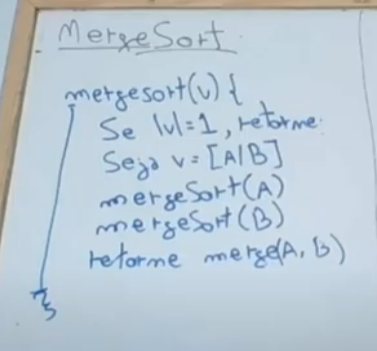 MergeSort
mergesort(v) {
Se |v|=1, retorne.
Seja v = [A|B]
mergeSort(A)
mergeSort(B)
retorne merge(A, B)
}